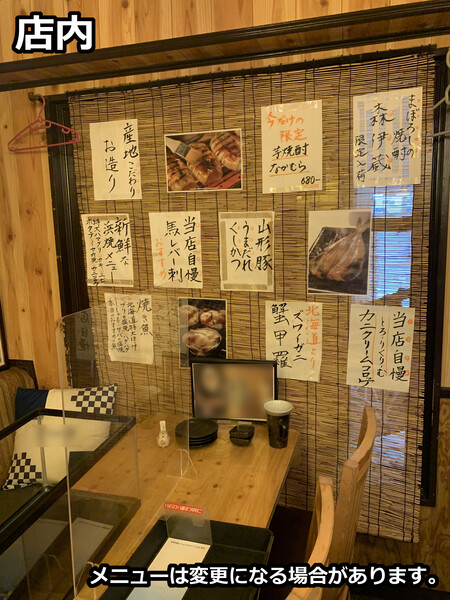 店内
まぼろしの
焼酎
森伊蔵
限定入荷
今だけの
限定
芋焼酎
なかむら
680-
産地こだわり
お造り
山形豚
うまだれ
ぐしかつ
当店自慢
馬レバー刺
おすすめ
新鮮な
浜焼メニュー
当店自慢
とろ〜りくりーむ
カニクリームコロッケ
北海道より
ズワイガニ
蟹甲羅
焼き魚
メニューは変更になる場合があります。